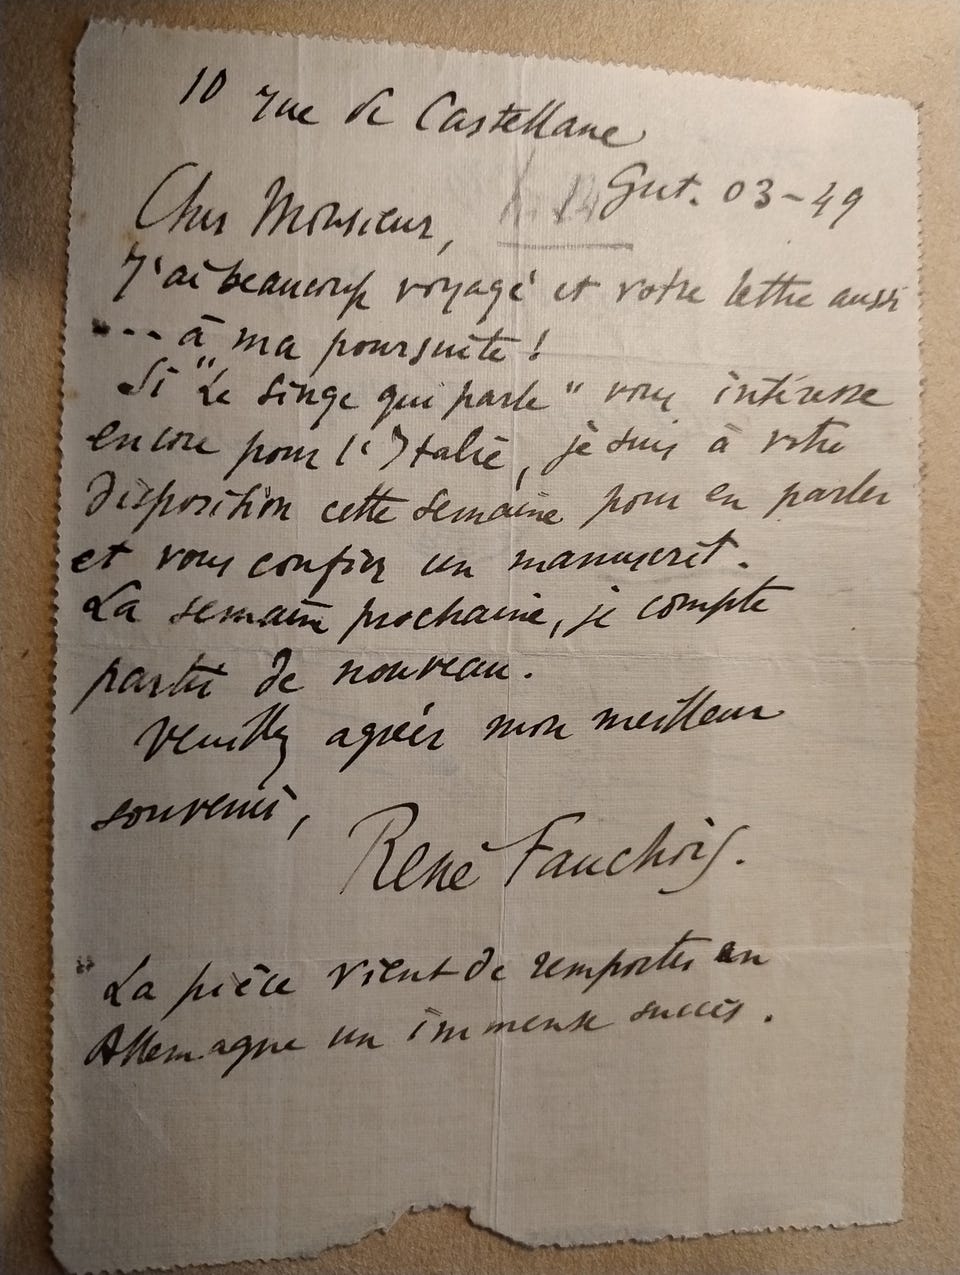 10 rue de Castellane
Gut. 03-49
Cher Monsieur,
J'ai beaucoup voyagé et votre lettre aussi
... à ma poursuite !
Si "Le singe qui parle" vous intéresse
encore pour l'Italie, je suis à votre
disposition cette semaine pour en parler
et vous confier un manuscrit.
La semaine prochaine, je compte
partir de nouveau.
Veuillez agréer mon meilleur
souvenir,
René Fauchois.
La pièce vient de remporter en
Allemagne un immense succès.